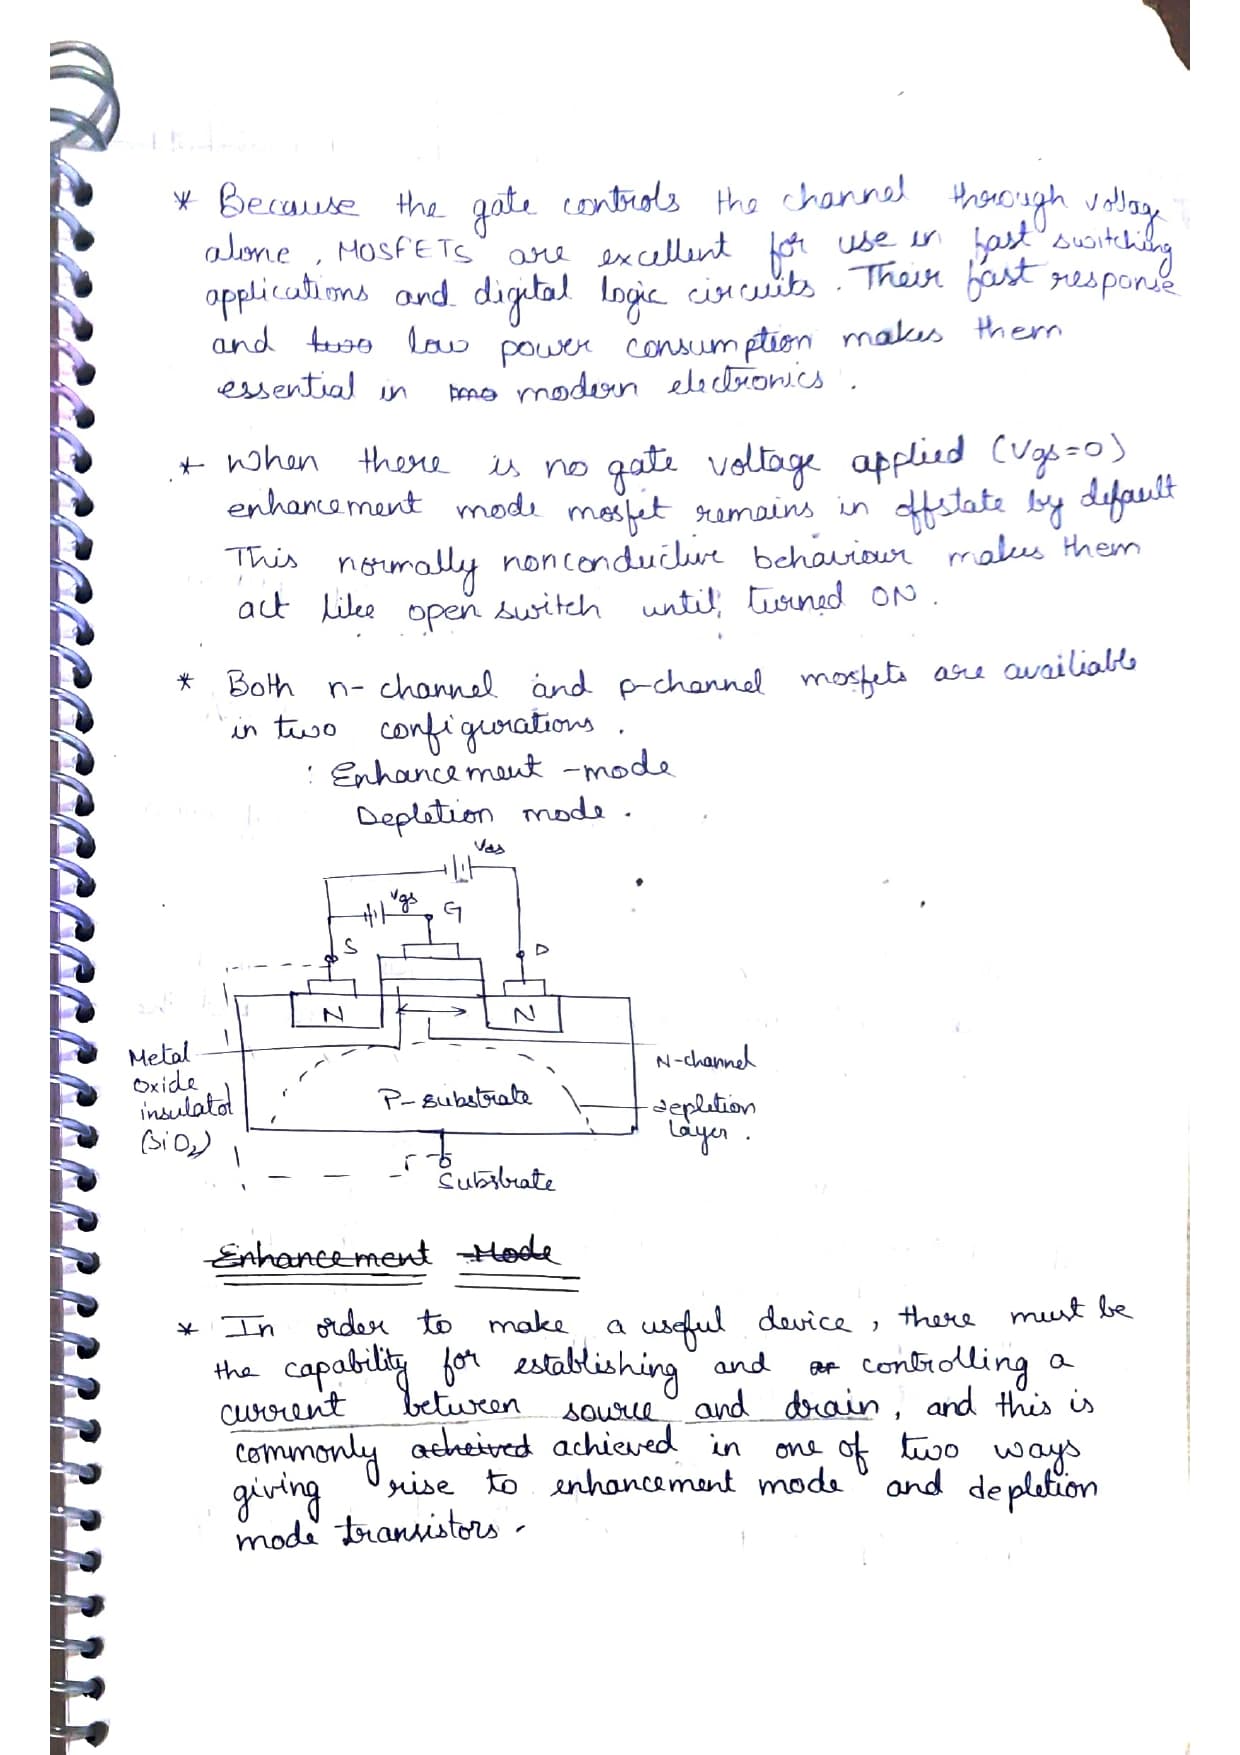 * Because the gate controls the channel thorough voltage
alone, MOSFETS are excellent for use in fast switching
applications and digital logic circuits. Their fast response
and two low power consumption makes them
essential in mo modern electronics.
* When there is no gate voltage applied (Vgs=0)
enhancement mode mosfet remains in offstate by default
This normally nonconductive behaviour makes them
act like open switch until turned ON.
* Both n-channel and p-channel mosfets are availiable
in two configurations.
: Enhancement -mode
Depletion mode.
Vds
Vgs
G
S
D
N
N
Metal
oxide
insulator
(SiO2)
N-channel
P-substrate
depletion
layer.
Substrate
Enhancement Mode
* In order to make a useful device, there must be
the capability for establishing and controlling a
current between source and drain, and this is
commonly acheived achieved in one of two ways
giving rise to enhancement mode and depletion
mode transistors.